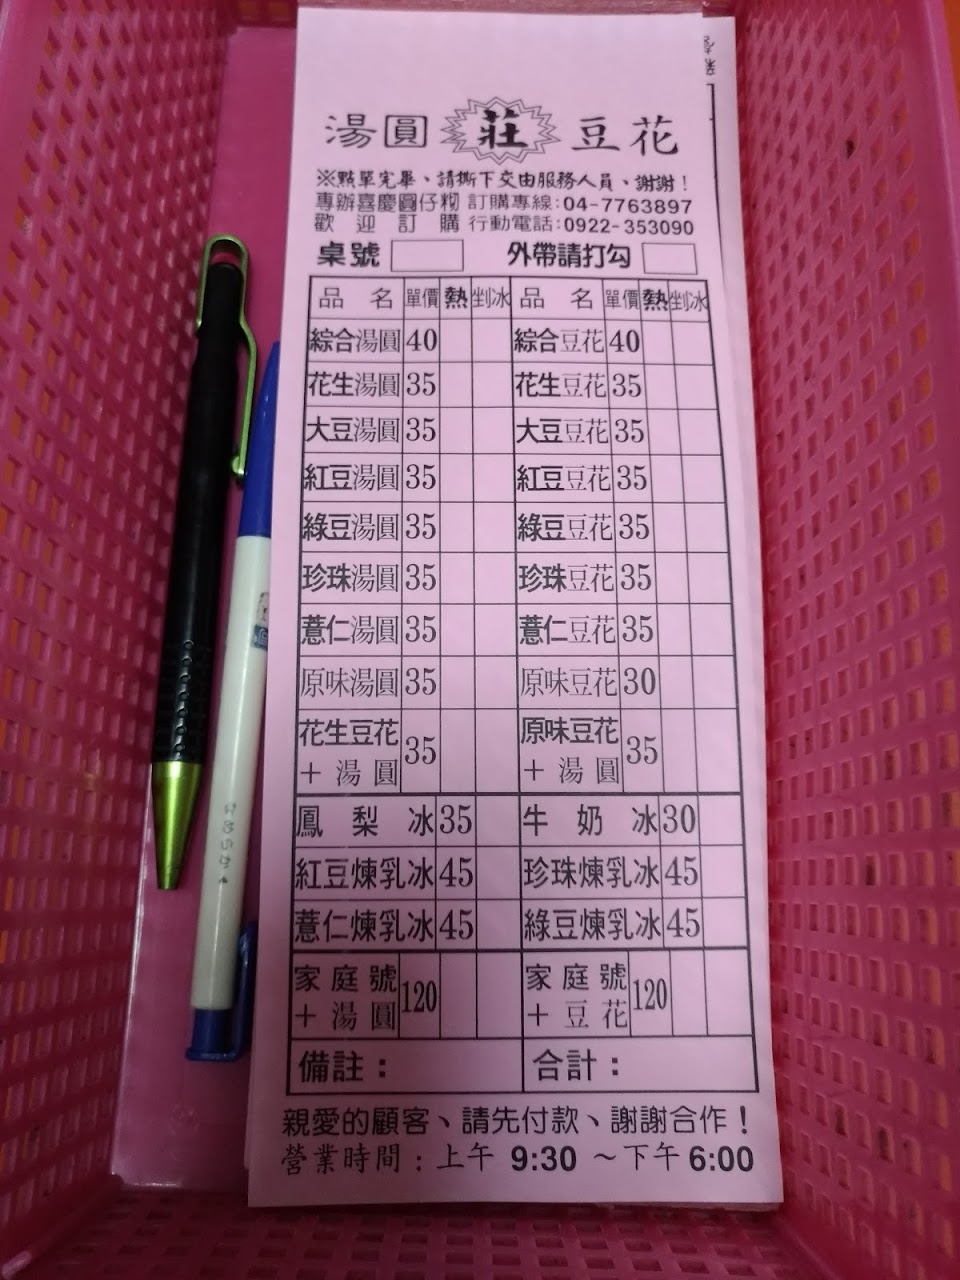 湯圓 莊 豆花
※點單完畢、請撕下交由服務人員、謝謝！
專辦喜慶圓仔粉 訂購專線：04-7763897
歡迎訂購 行動電話：0922-353090
桌號 外帶請打勾
品名 單價 熱 剉冰 品名 單價 熱 剉冰
綜合湯圓 40 綜合豆花 40
花生湯圓 35 花生豆花 35
大豆湯圓 35 大豆豆花 35
紅豆湯圓 35 紅豆豆花 35
綠豆湯圓 35 綠豆豆花 35
珍珠湯圓 35 珍珠豆花 35
薏仁湯圓 35 薏仁豆花 35
原味湯圓 35 原味豆花 30
花生豆花+湯圓 35 原味豆花+湯圓 35
鳳梨冰 35 牛奶冰 30
紅豆煉乳冰 45 珍珠煉乳冰 45
薏仁煉乳冰 45 綠豆煉乳冰 45
家庭號+湯圓 120 家庭號+豆花 120
備註： 合計：
親愛的顧客、請先付款、謝謝合作！
營業時間：上午 9:30 ～下午 6:00